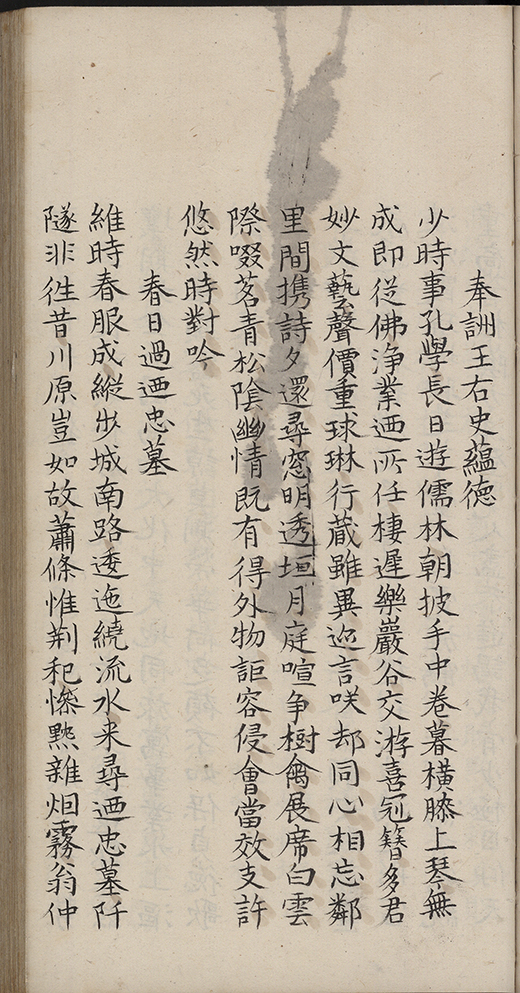 奉詶王右史蘊德
少時事孔學長日遊儒林朝披手中卷暮橫膝上琴無
成即從佛淨業迺所任棲遲樂巖谷交游喜冠簪多君
妙文藝聲價重球琳行蔵雖異迹言咲却同心相忘鄰
里間攜詩夕還尋窓明透垣月庭喧争樹禽展席白雲
際啜茗青松陰幽情既有得外物詎容侵會當效支許
悠然時對吟
春日過迺忠墓
維時春服成縱步城南路逶迤繞流水来尋迺忠墓阡
隧非徃昔川原豈如故蕭條惟荆杞慘黙雜烟霧翁仲